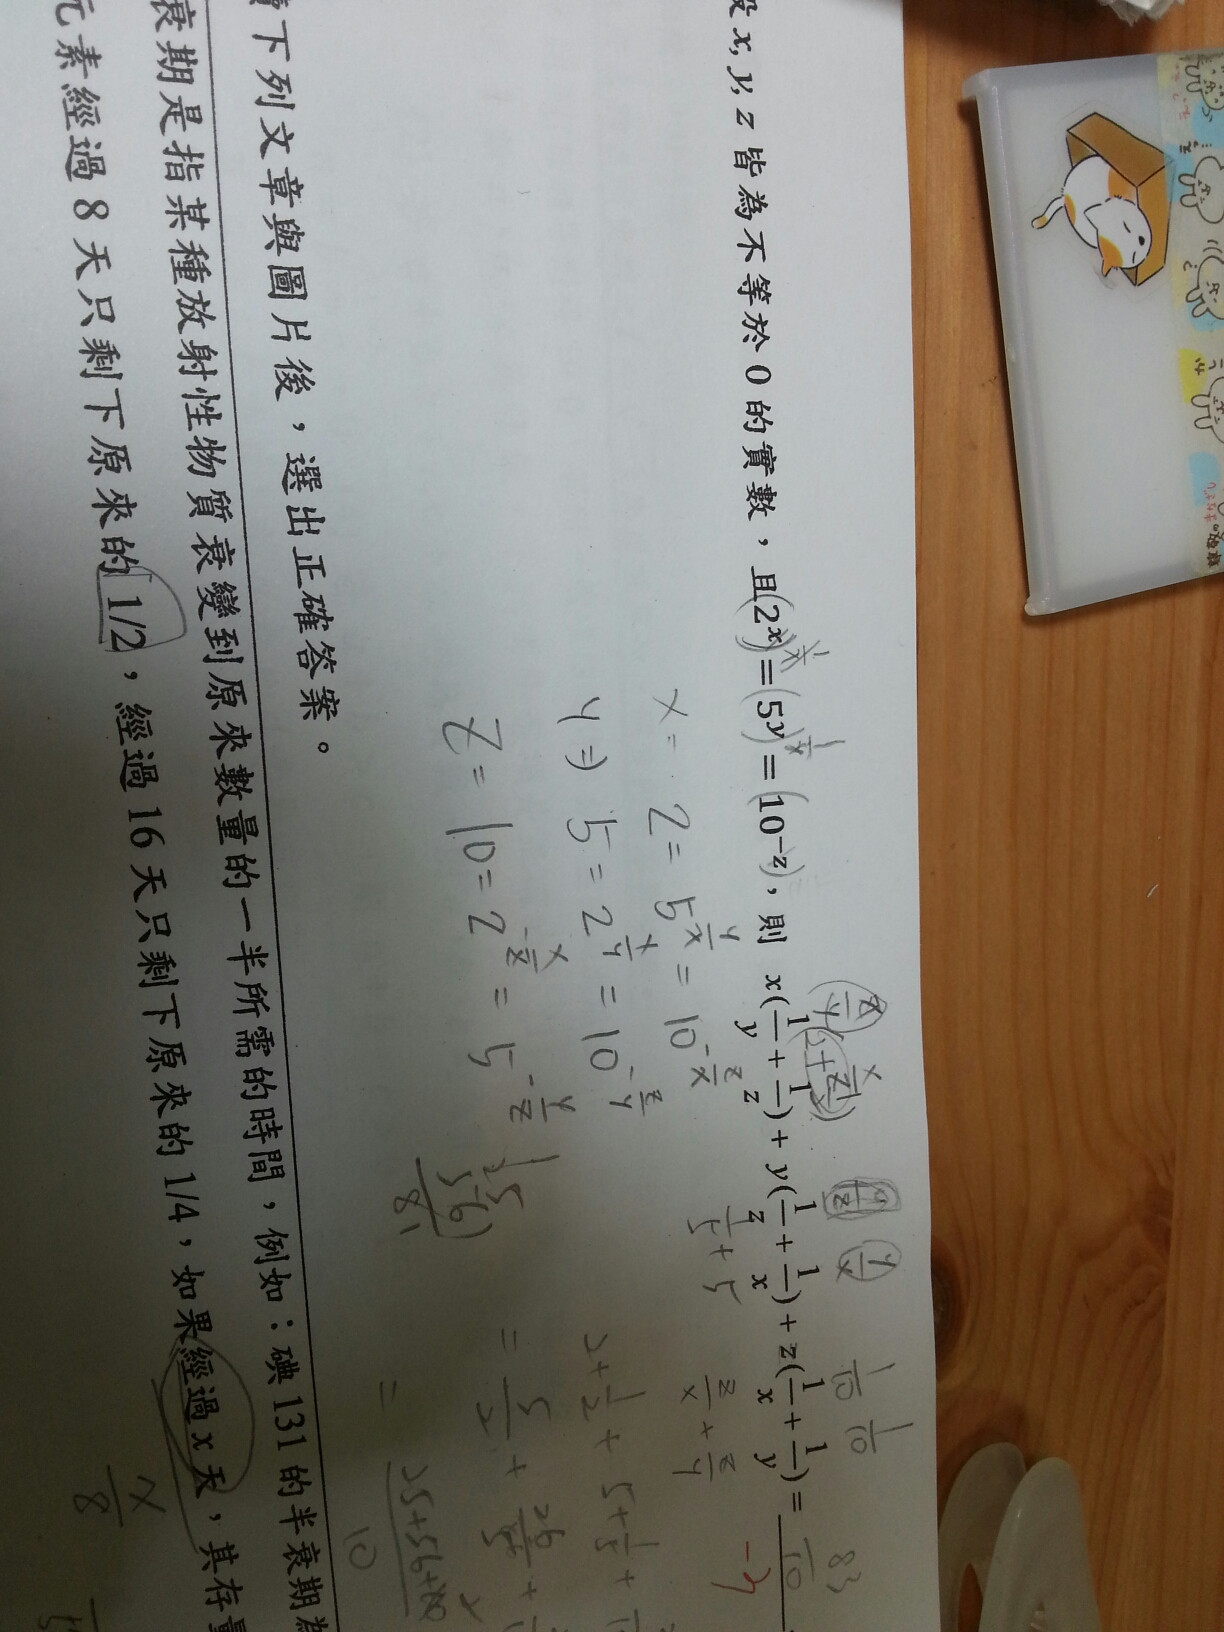 x, y, z 皆為不等於 0 的實數，且(2ˣ)=(5ʸ)=(10⁻ᶻ)，則 x(1/y+1/z)+y(1/z+1/x)+z(1/x+1/y)=
83
10
-3
x = 2 = 5^(y/x) = 10^(-z/x)
y ⇒ 5 = 2^(x/y) = 10^(-z/y)
z = 10 = 2^(-x/z) = 5^(-y/z)
1/5 + 5
z/x + z/y
2+1/2 + 5+1/5 +
= 5/2 + 26/5 +
=
10
下列文章與圖片後，選出正確答案。
衰期是指某種放射性物質衰變到原來數量的一半所需的時間，例如：碘 131 的半衰期為
元素經過 8 天只剩下原來的 1/2，經過 16 天只剩下原來的 1/4，如果經過 x 天，其存量
x/8